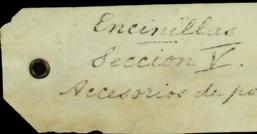 Encinillas
Seccion V.
Accesorios de po